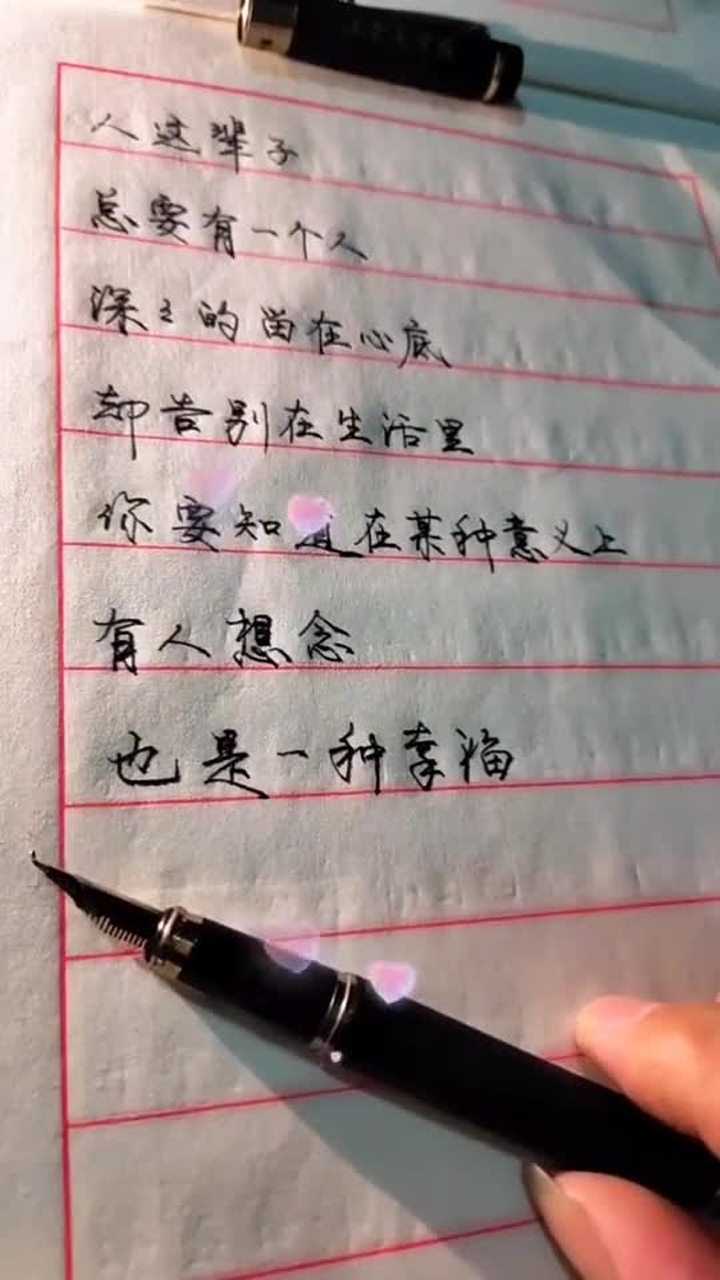 人这辈子
总要有一个人
深々的留在心底
却告别在生活里
你要知道在某种意义上
有人想念
也是一种幸福